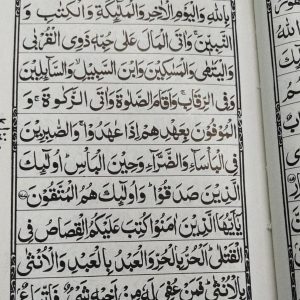 بِاللّٰهِ وَالْيَوْمِ الْاٰخِرِ وَالْمَلٰٓئِكَةِ وَالْكِتٰبِ وَ
النَّبِيّٖنَ ۚ وَاٰتَى الْمَالَ عَلٰى حُبِّهٖ ذَوِى الْقُرْبٰى
وَالْيَتٰمٰى وَالْمَسٰكِيْنَ وَابْنَ السَّبِيْلِ ۙ وَالسَّآئِلِيْنَ
وَفِى الرِّقَابِ ۚ وَاَقَامَ الصَّلٰوةَ وَاٰتَى الزَّكٰوةَ ۚ وَ
الْمُوْفُوْنَ بِعَهْدِهِمْ اِذَا عٰهَدُوْا ۚ وَالصّٰبِرِيْنَ
فِى الْبَاْسَآءِ وَالضَّرَّآءِ وَحِيْنَ الْبَاْسِ ؕ اُولٰٓئِكَ
الَّذِيْنَ صَدَقُوْا ؕ وَاُولٰٓئِكَ هُمُ الْمُتَّقُوْنَ
يٰٓاَيُّهَا الَّذِيْنَ اٰمَنُوْا كُتِبَ عَلَيْكُمُ الْقِصَاصُ فِى
الْقَتْلٰى ؕ اَلْحُرُّ بِالْحُرِّ وَالْعَبْدُ بِالْعَبْدِ وَالْاُنْثٰى
بِالْاُنْثٰى ؕ فَمَنْ عُفِىَ لَهٗ مِنْ اَخِيْهِ شَىْءٌ فَاتِّبَاعٌۢ